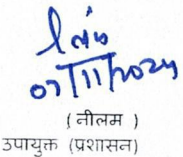 07/11/2024
( नीलम )
उपायुक्त (प्रशासन)